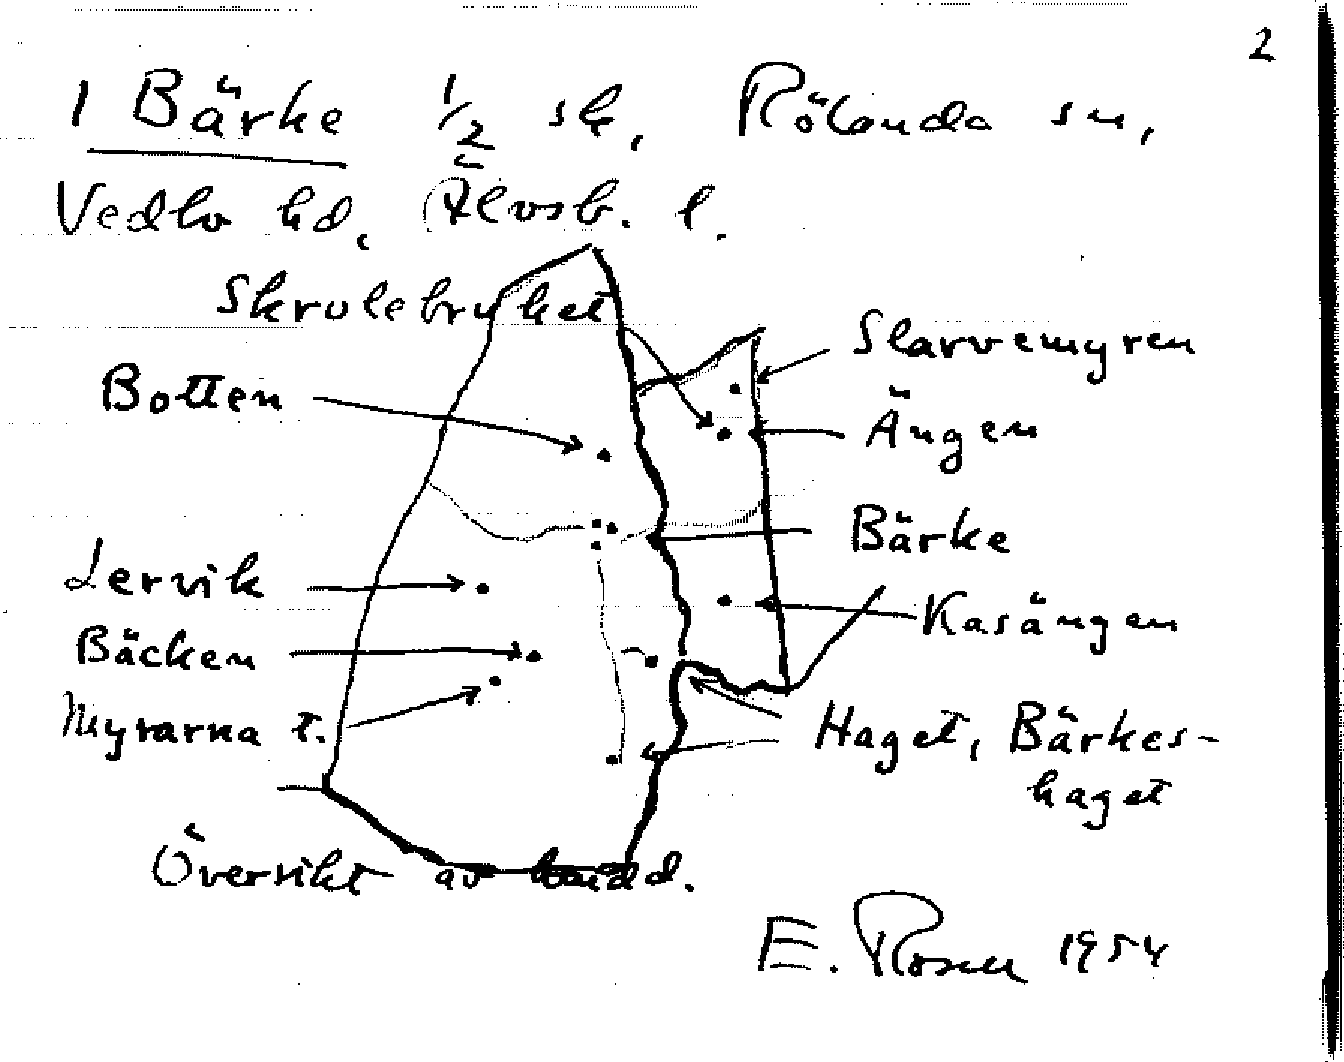 2
1 Bärke 1/2 sk, Rölanda sn,
Vedbo hd, Älvsb. l.
Skrolebruket
Slarvemyren
Botten
Ängen
Bärke
Lervik
Kasängen
Bäcken
Myrarna t.
Haget, Bärkes-
haget
Översikt av
E. Rosell 1954